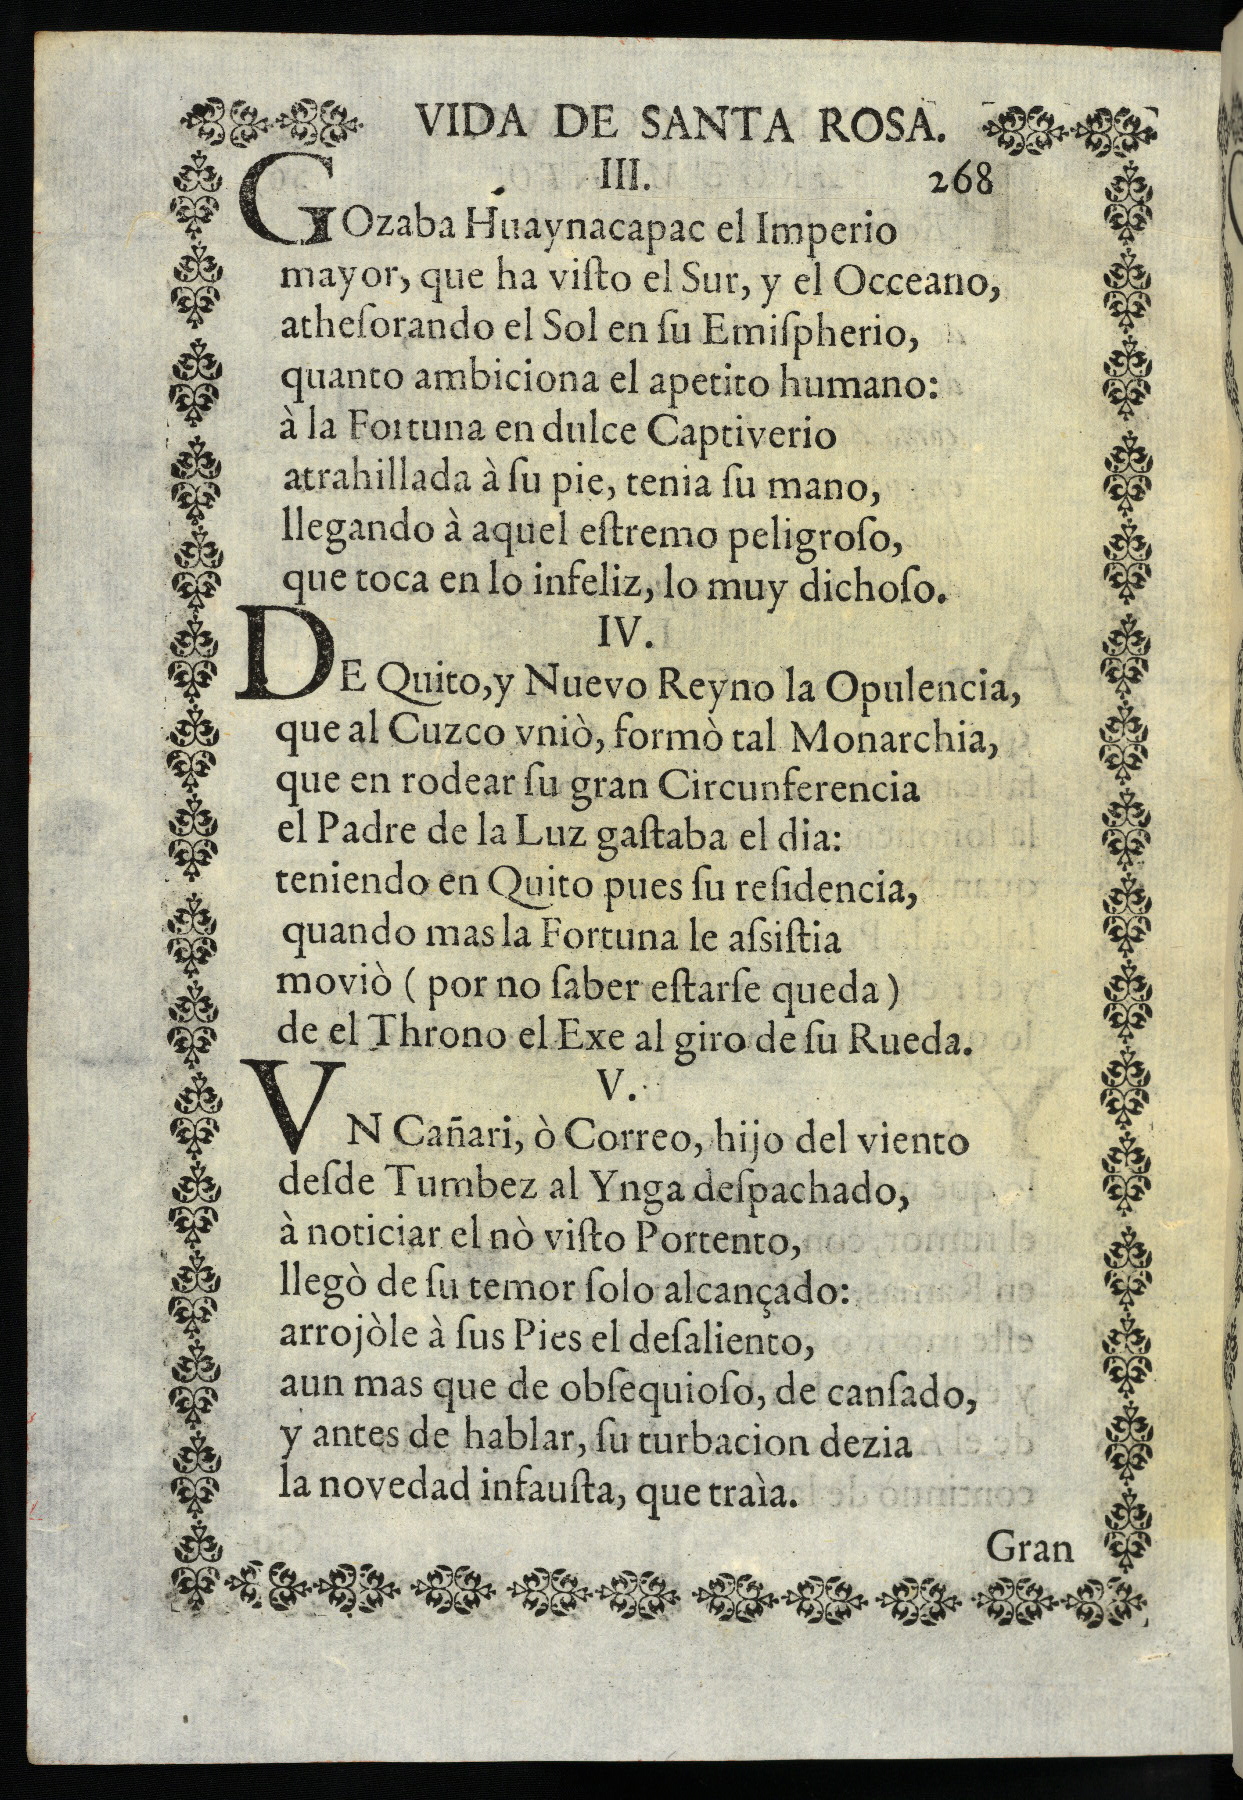 VIDA DE SANTA ROSA.
III. 268
GOzaba Huaynacapac el Imperio
mayor, que ha viſto el Sur, y el Occeano,
atheſorando el Sol en ſu Emiſpherio,
quanto ambiciona el apetito humano:
à la Fortuna en dulce Captiverio
atrahillada à ſu pie, tenia ſu mano,
llegando à aquel eſtremo peligroſo,
que toca en lo infeliz, lo muy dichoſo.
IV.
DE Quito, y Nuevo Reyno la Opulencia,
que al Cuzco vniò, formò tal Monarchia,
que en rodear ſu gran Circunferencia
el Padre de la Luz gaſtaba el dia:
teniendo en Quito pues ſu reſidencia,
quando mas la Fortuna le aſsiſtia
moviò ( por no ſaber eſtarſe queda )
de el Throno el Exe al giro de ſu Rueda.
V.
VN Cañari, ò Correo, hijo del viento
deſde Tumbez al Ynga deſpachado,
à noticiar el nò viſto Portento,
llegò de ſu temor ſolo alcançado:
arrojòle à ſus Pies el deſaliento,
aun mas que de obſequioſo, de canſado,
y antes de hablar, ſu turbacion dezia
la novedad infauſta, que traìa.
Gran